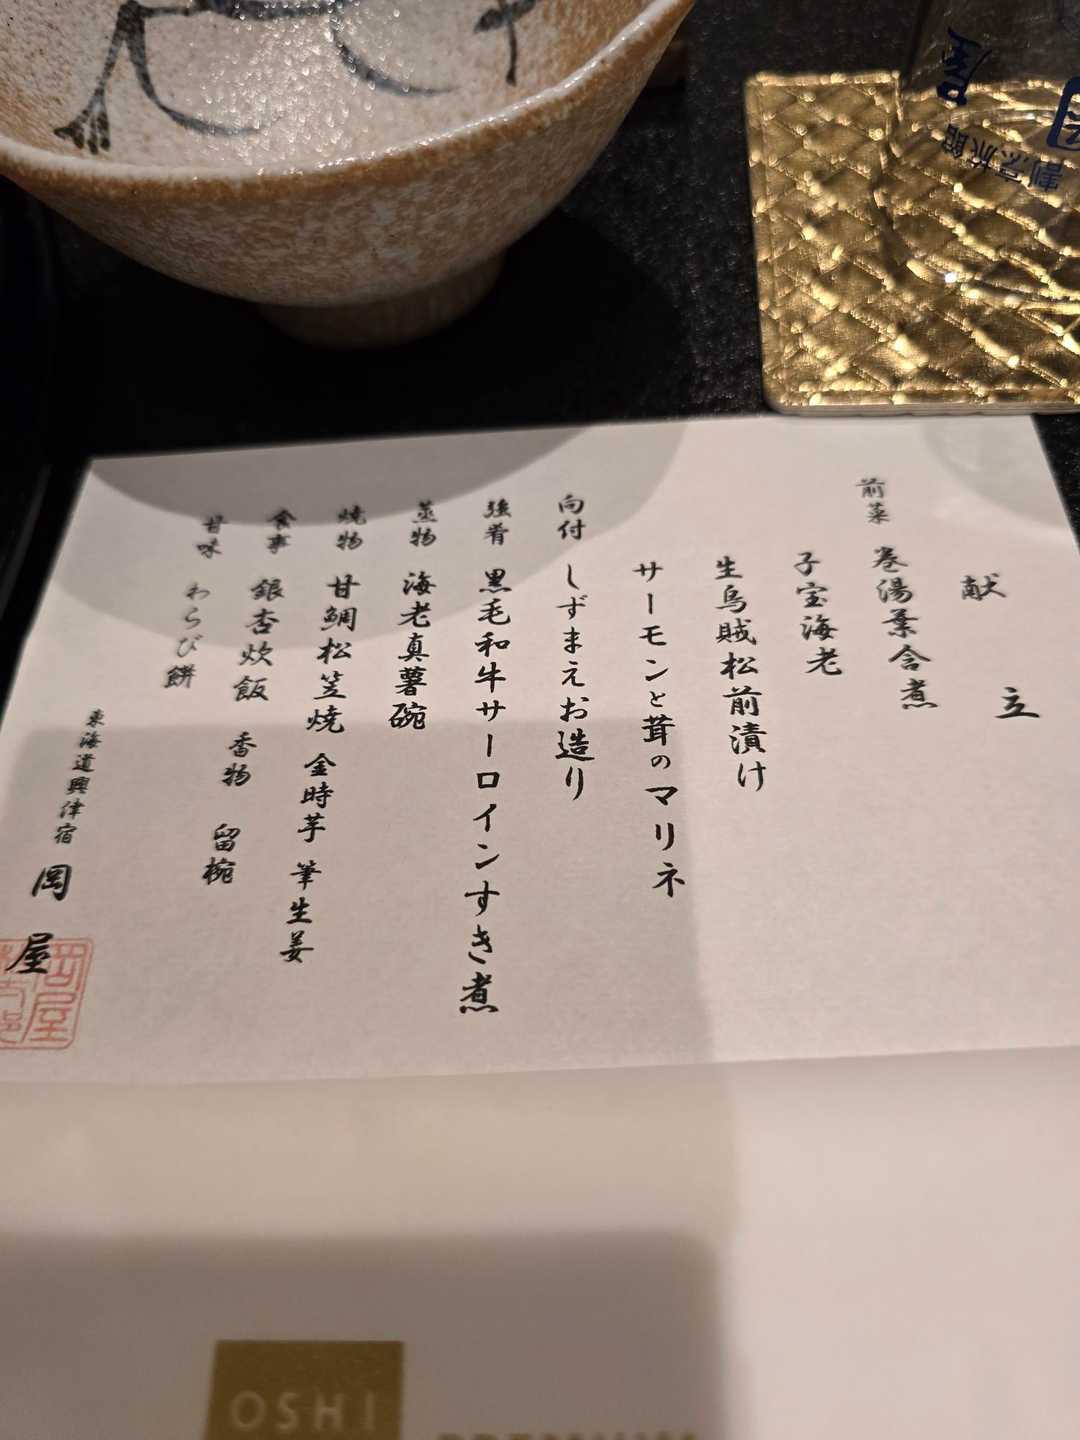 献立
前菜 巻湯葉含煮
子宝海老
生烏賊松前漬け
サーモンと茸のマリネ
向付 しずまえお造り
強肴 黒毛和牛サーロインすき煮
蒸物 海老真薯碗
焼物 甘鯛松笠焼 金時芋 筆生姜
食事 銀杏炊飯 香物 留椀
甘味 わらび餅
東海道興津宿 岡屋
岡屋
割烹旅館
OSHI